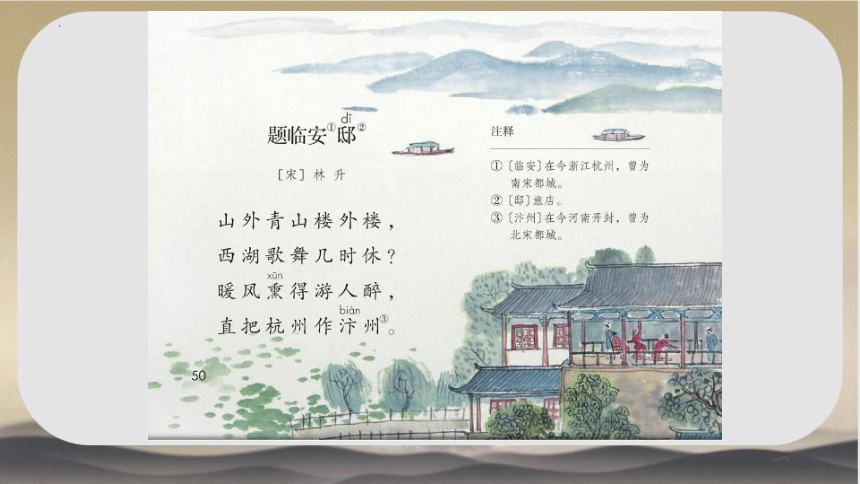 dǐ
题临安①邸②
[宋] 林 升
山外青山楼外楼，
西湖歌舞几时休？
xūn
暖风熏得游人醉，
biàn
直把杭州作汴州③。
50
注释
①〔临安〕在今浙江杭州，曾为
南宋都城。
②〔邸〕旅店。
③〔汴州〕在今河南开封，曾为
北宋都城。